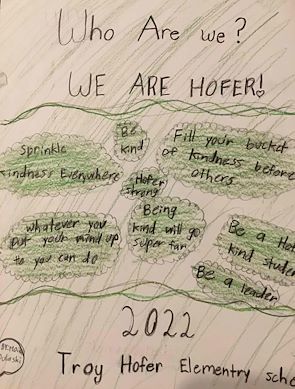 Who Are we?
WE ARE HOFER!
Be
kind
Fill your bucket
of kindness before
others
Sprinkle
kindness Everywhere
Hofer
strong
Being
kind will go
super far
whatever you
put your mind up
to you can do
Be a
kind
Be a leader
2022
Troy Hofer Elementry